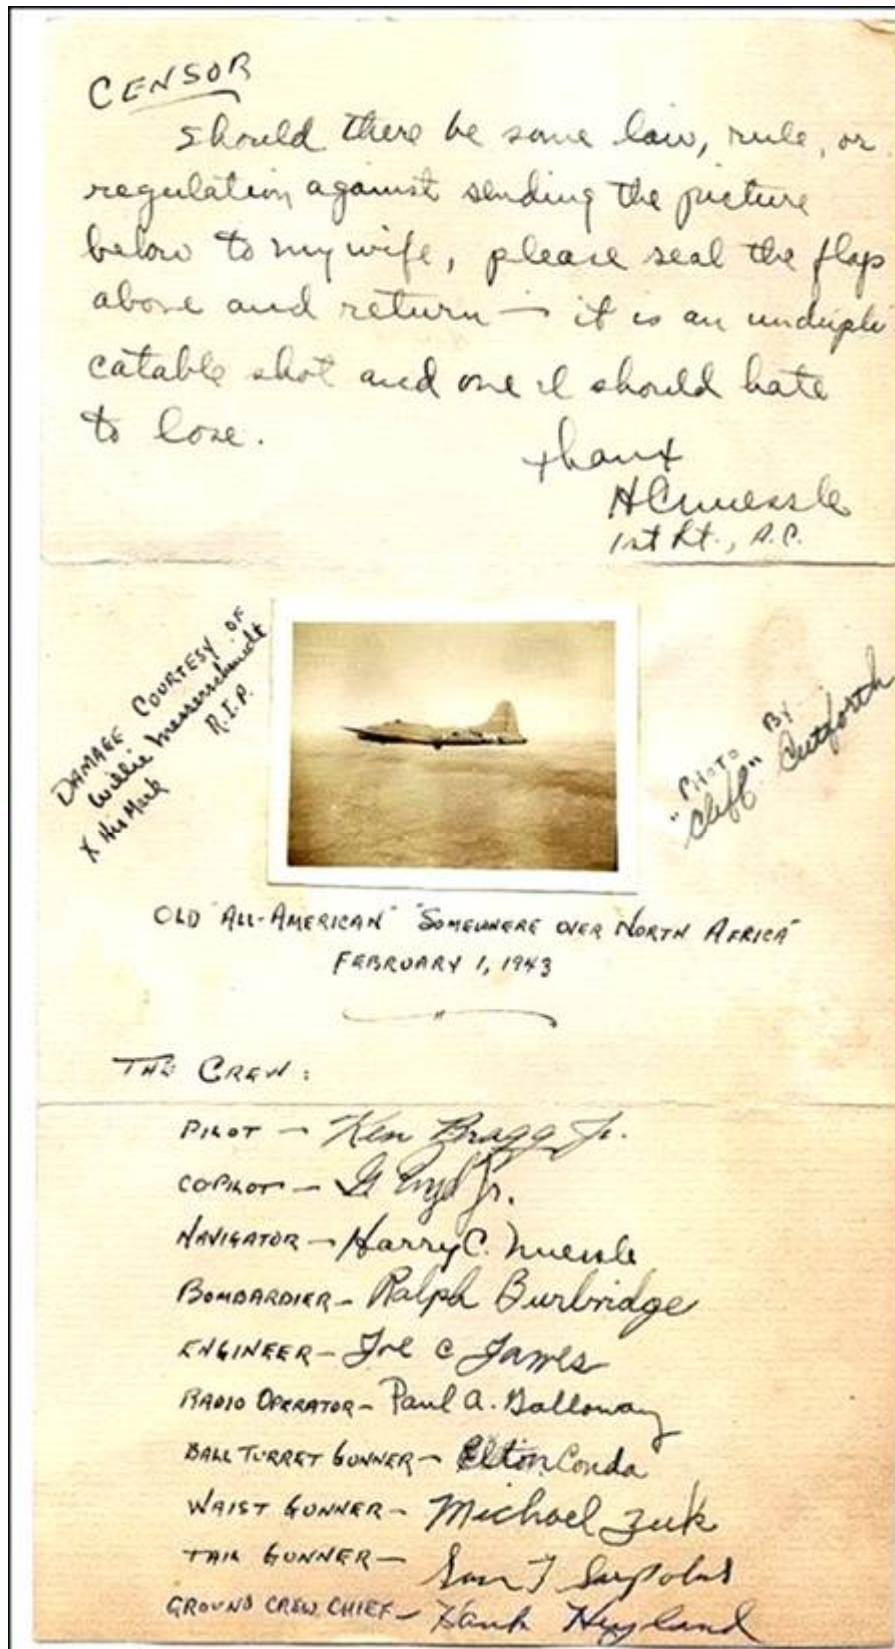 CENSOR
Should there be some law, rule, or
regulation against sending the picture
below to my wife, please seal the flap
above and return — it is an undupli
catable shot and one I should hate
to lose.
thanx
HCNuessle
1st Lt., A.C.
DAMAGE COURTESY OF
Willie Messerschmidt
R.I.P.
X His Mark
PHOTO BY
"Cliff" Cutforth
OLD "ALL-AMERICAN" "SOMEWHERE OVER NORTH AFRICA"
FEBRUARY 1, 1943
THE CREW:
PILOT — Ken Bragg Jr.
COPILOT — Jr.
NAVIGATOR — Harry C. Nuessle
BOMBARDIER — Ralph Burbridge
ENGINEER — Joe C James
RADIO OPERATOR — Paul A. Galloway
BALL TURRET GUNNER — Elton Conda
WAIST GUNNER — Michael Zuk
TAIL GUNNER — Sam T Sarpolus
GROUND CREW CHIEF — Hank Hyland